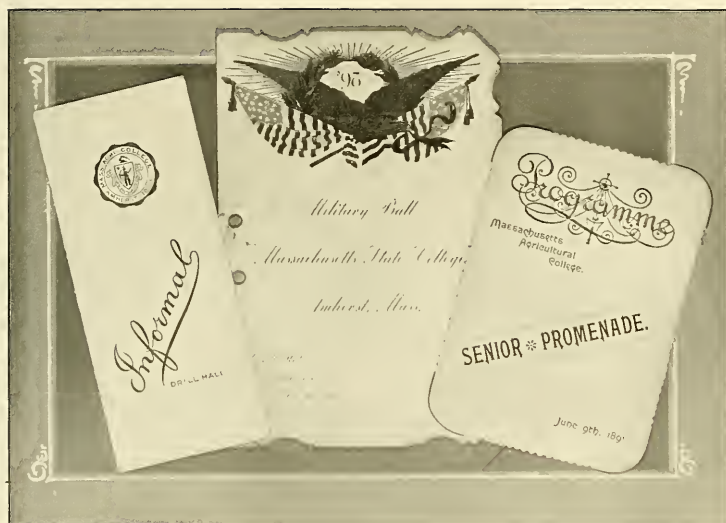 MASS. AGRI. COLLEGE
AMHERST
Informal
DRILL HALL
'95
Military Ball
Massachusetts State College,
Amherst, Mass.
Programme
Massachusetts
Agricultural
College.
SENIOR PROMENADE.
June 9th, 189